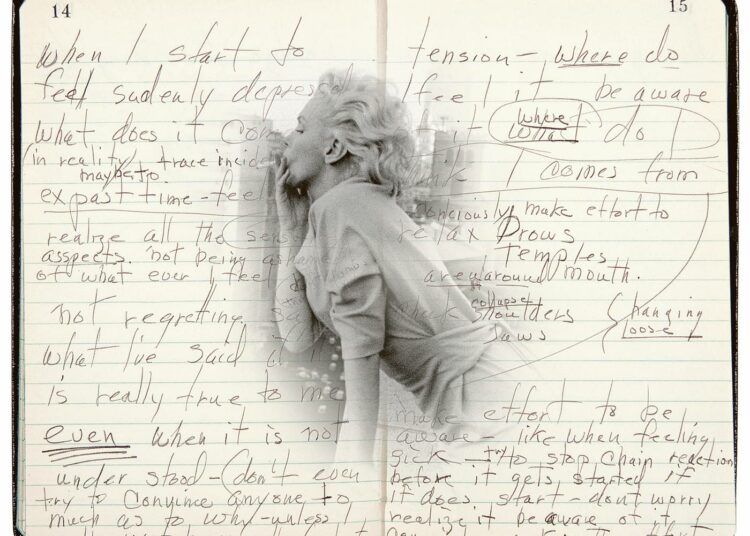 14
when I start to
feel sudenly depressed
what does it com
(in reality) trace incide
maybe to
expast time - feel
realize all the sens
asspects. not being asham
of what ever I feel
not regretting sa
what I've said if i
is really true to me
even when it is not
under stood - (don't even
try to convince anyone to
much as to why - unless I
15
tension - where do
I feel it be aware
it where what do I
think I comes from
conciously make effort to
relax Brows
Temples
area around mouth.
collapsed
shoulders (hanging
Jaws loose)
make effort to be
aware - like when feeling
sick - try to stop chain reaction
before it gets started if
it does start - dont worry
realize it be aware of it